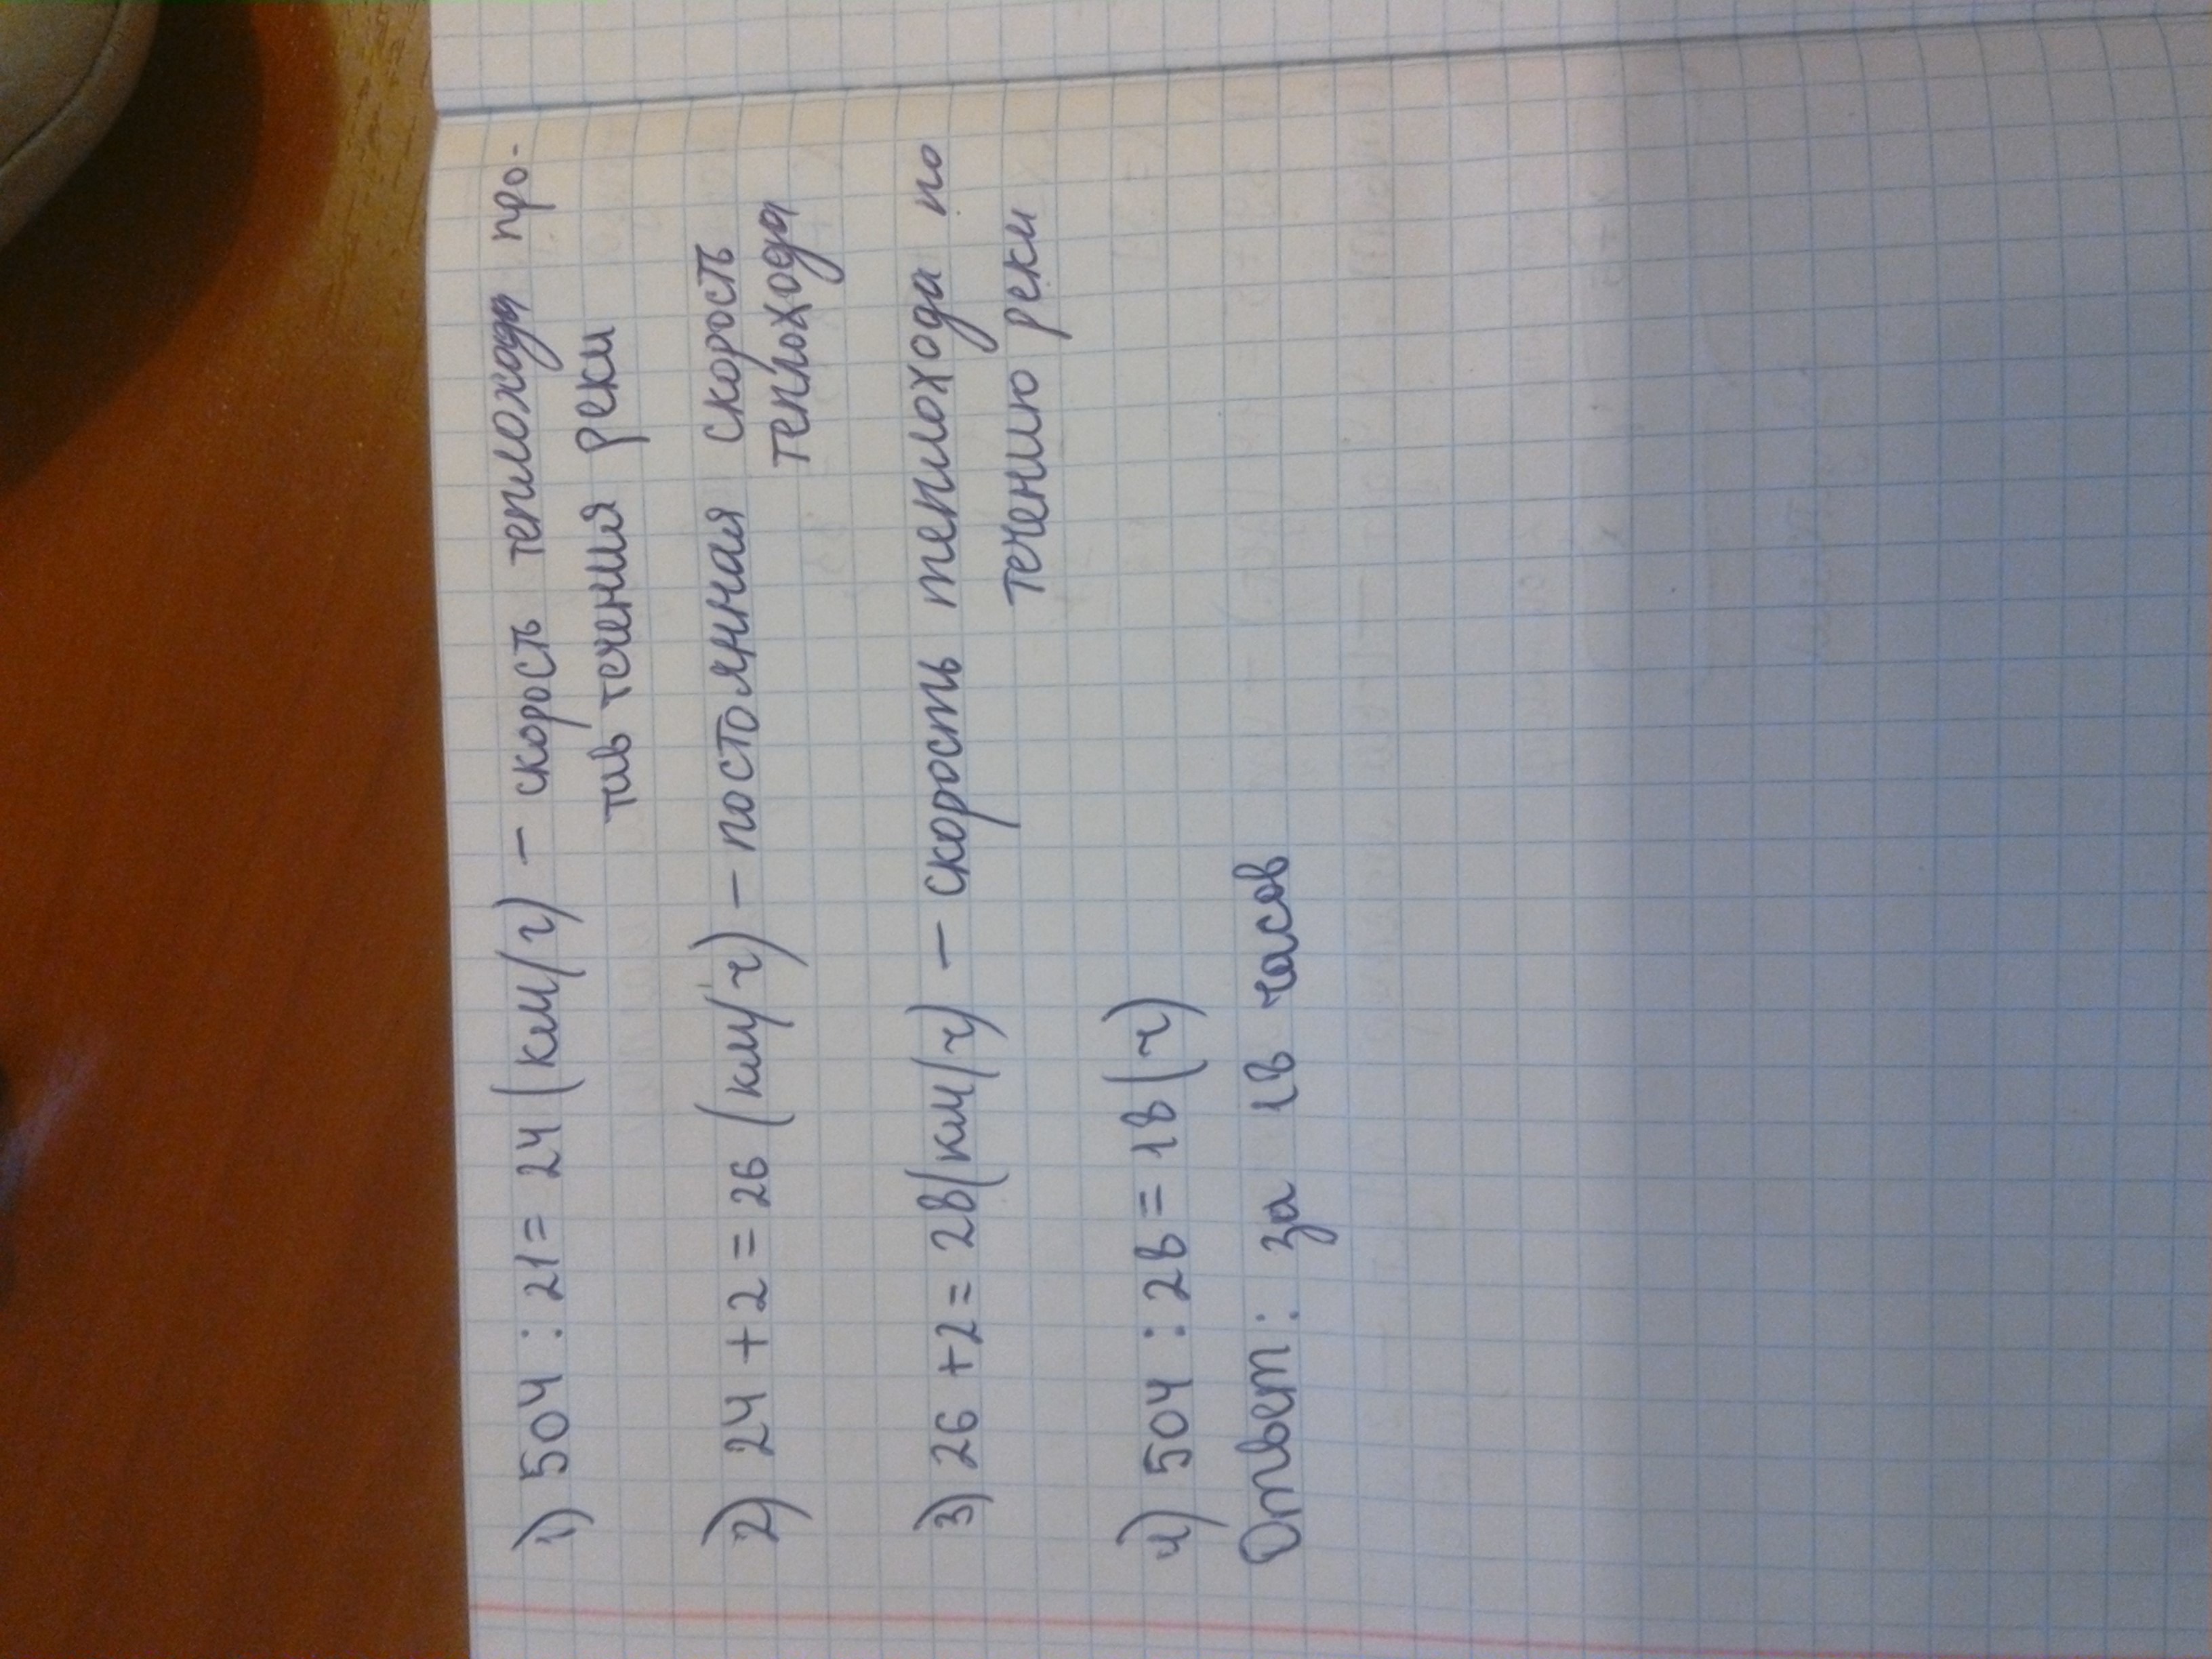 1) 504 : 21 = 24 (км/ч) – скорость теплохода про-
тив течения реки
2) 24 + 2 = 26 (км/ч) – постоянная скорость
теплохода
3) 26 + 2 = 28 (км/ч) – скорость теплохода по
течению реки
4) 504 : 28 = 18 (ч)
Ответ: за 18 часов